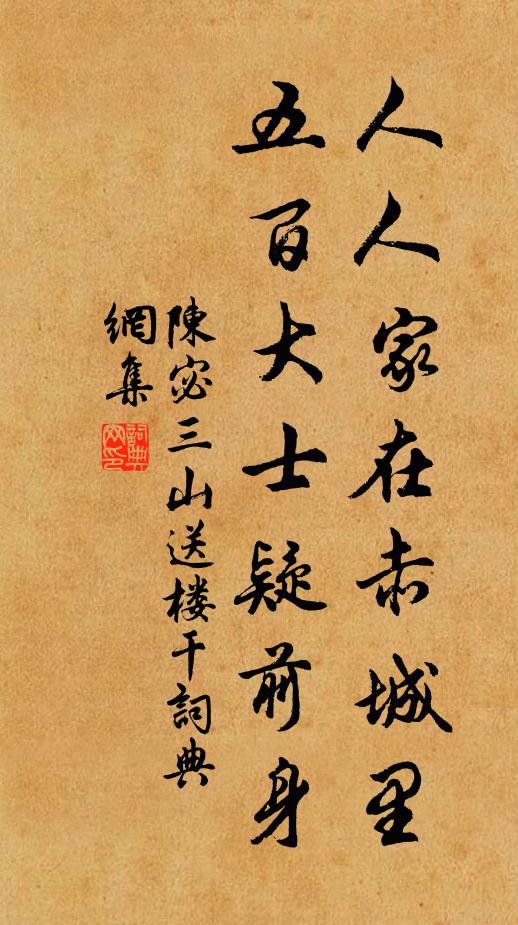 人人家在赤城里
五百大士疑前身
陳宓三山送楼干詞典
網集
詞典
网印